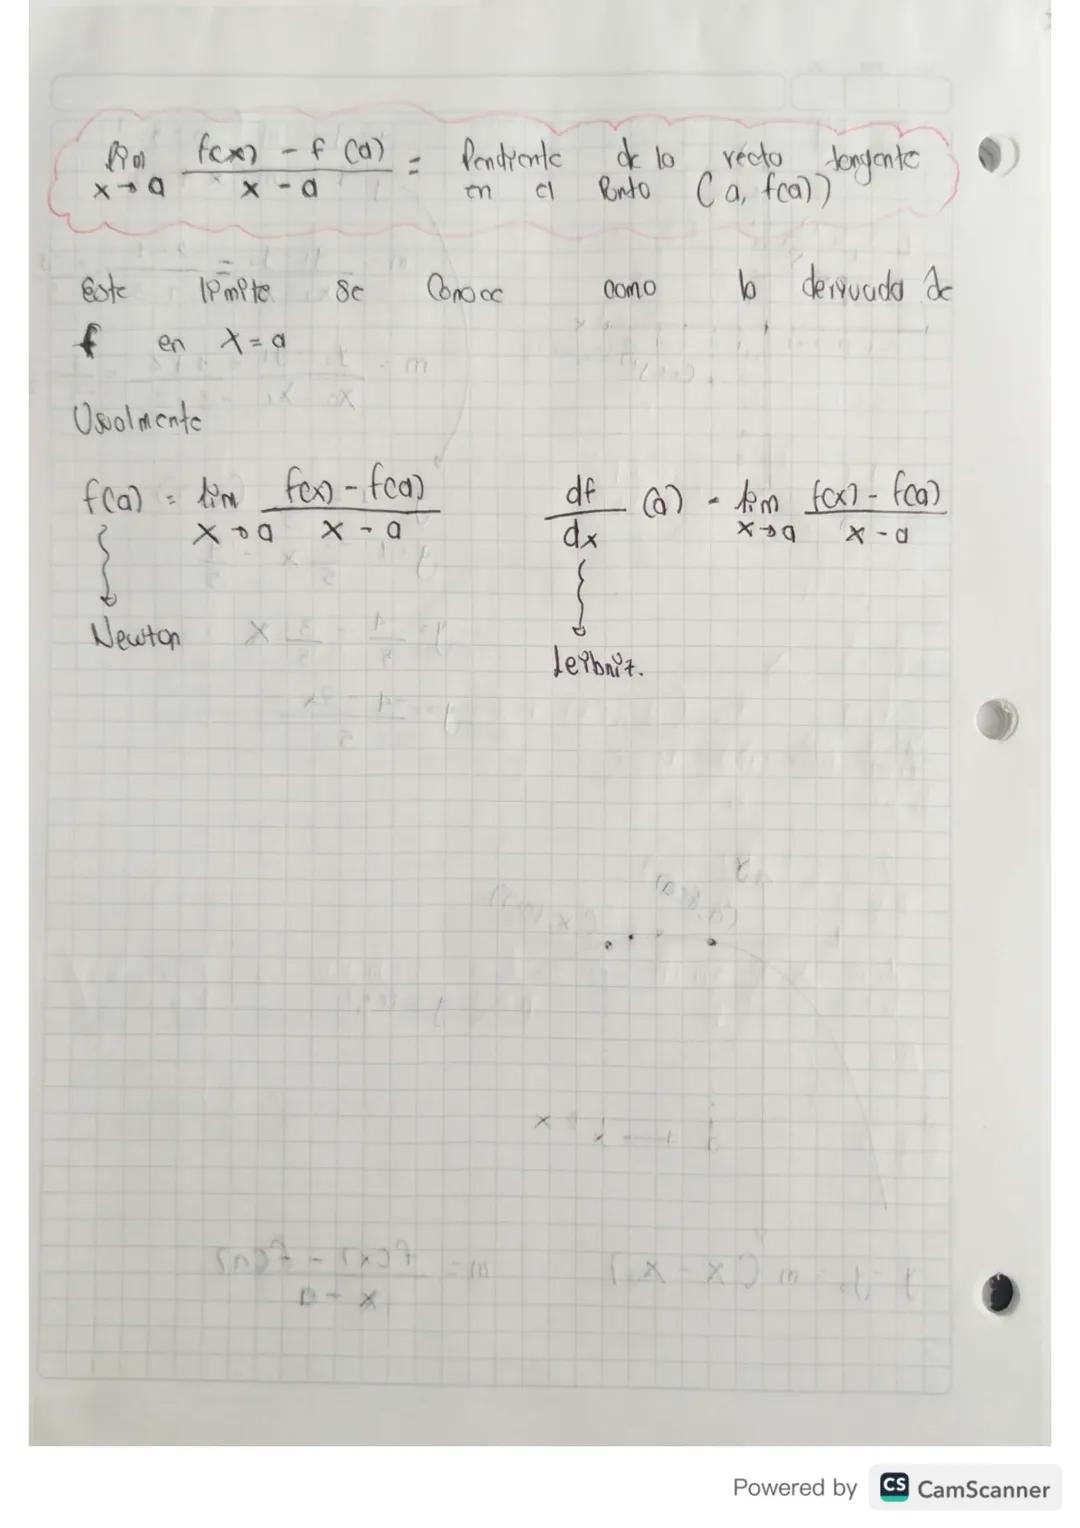 lim f(x) - f(a) = Pendiente de la recta tangente
x→a x - a en el Punto (a, f(a))
Este límite se conoce como la derivada de
f en x = a
Usualmente
f(a) = lim f(x) - f(a) df (a) = lim f(x) - f(a)
x→a x - a dx x→a x - a
Newton
Leibniz.
Powered by CS CamScanner